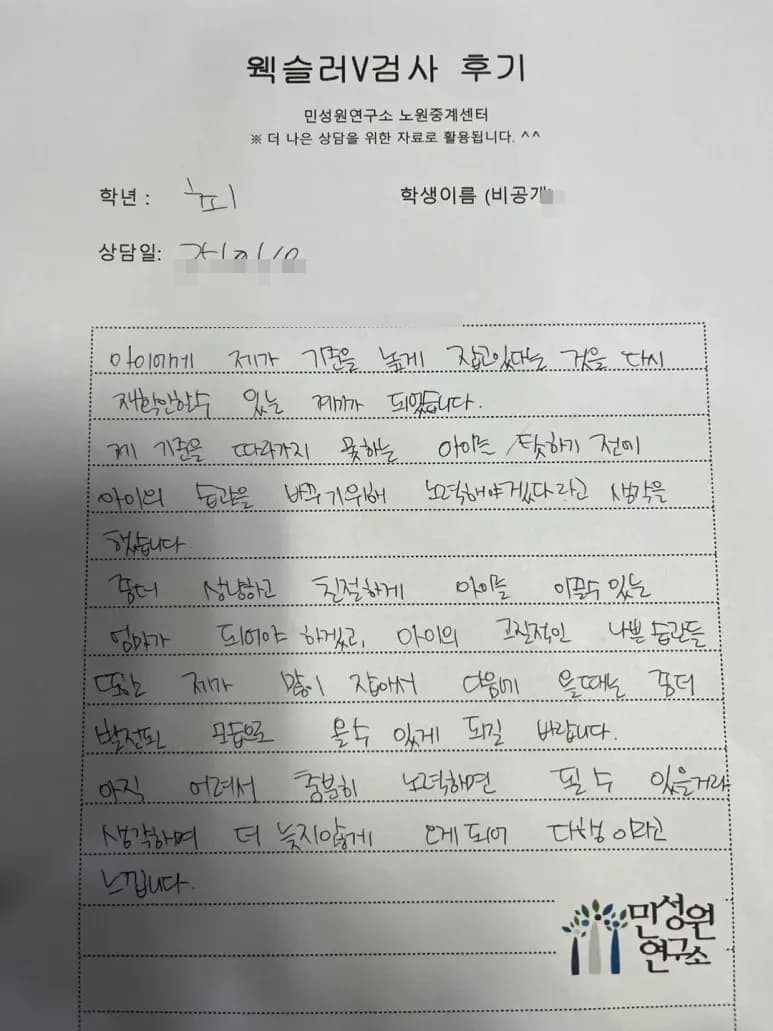 웩슬러V검사 후기
민성원연구소 노원중계센터
※ 더 나은 상담을 위한 자료로 활용됩니다. ^^
학년 :
학생이름 (비공개
상담일:
아이에게 제가 기준을 높게 잡고있다는 것을 다시
재확인할수 있는 계기가 되었습니다.
제 기준을 따라가지 못하는 아이를 탓하기 전에
아이의 습관을 바꾸기위해 노력해야겠다라고 생각을
했습니다.
좀더 상냥하고 친절하게 아이를 이끌수 있는
엄마가 되어야 하겠고, 아이의 고질적인 나쁜 습관들
또한 제가 많이 잡아서 다음에 올때는 좀더
발전된 모습으로 올수 있게 되길 바랍니다.
아직 어려서 충분히 노력하면 될 수 있을거라
생각하며 더 늦지않게 오게 되어 다행이라고
느낍니다.
민성원
연구소